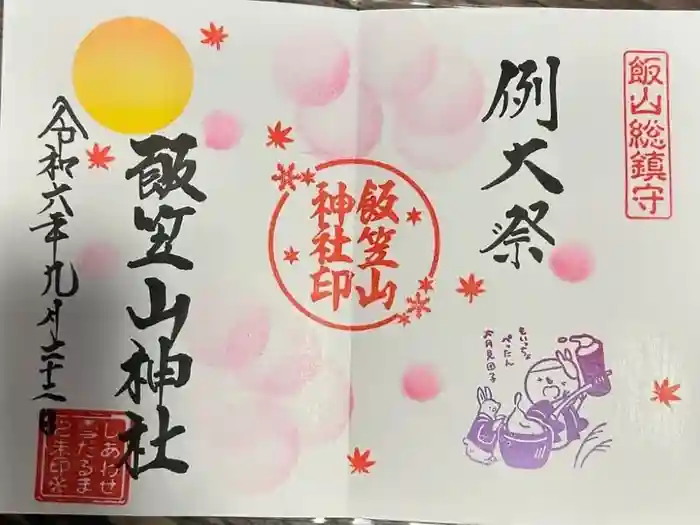 飯山総鎮守
例大祭
飯笠山
神社印
もいっちょ
ぺったん
大月見団子
飯笠山神社
令和六年九月二十二日
しあわせ
うだるま
朱印